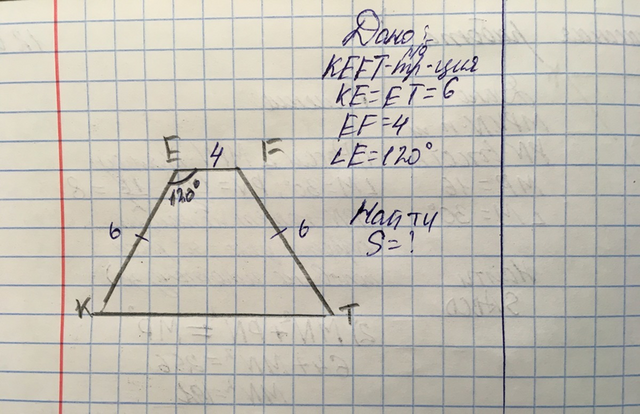 Дано:
KEFT-тр-ция
KE=FT=6
EF=4
∠E=120°
Найти
S=?
E 4 F
120°
6 6
K T